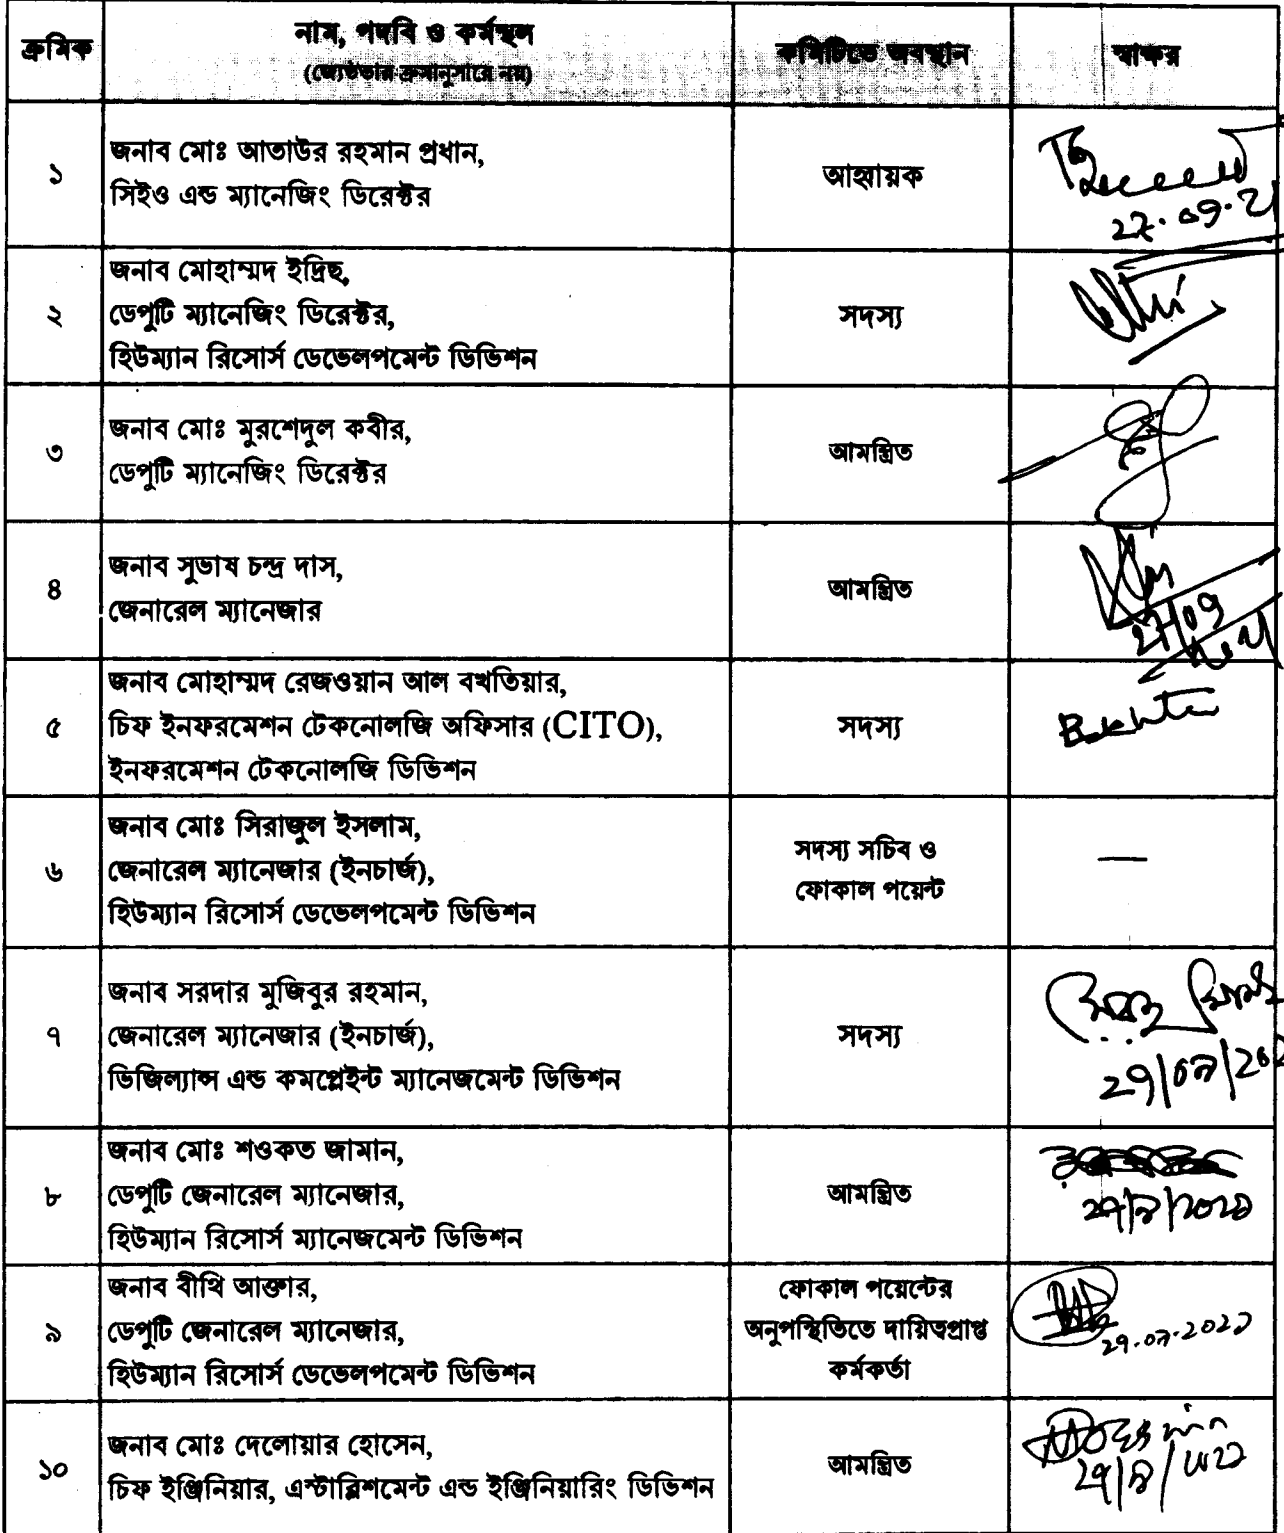 ক্রমিক
নাম, পদবি ও কর্মস্থল
(জ্যেষ্ঠতার ক্রমানুসারে নয়)
কমিটিতে অবস্থান
স্বাক্ষর
১
জনাব মোঃ আতাউর রহমান প্রধান,
সিইও এন্ড ম্যানেজিং ডিরেক্টর
আহ্বায়ক
27.09.21
২
জনাব মোহাম্মদ ইদ্রিছ,
ডেপুটি ম্যানেজিং ডিরেক্টর,
হিউম্যান রিসোর্স ডেভেলপমেন্ট ডিভিশন
সদস্য
৩
জনাব মোঃ মুরশেদুল কবীর,
ডেপুটি ম্যানেজিং ডিরেক্টর
আমন্ত্রিত
৪
জনাব সুভাষ চন্দ্র দাস,
জেনারেল ম্যানেজার
আমন্ত্রিত
27/09
৫
জনাব মোহাম্মদ রেজওয়ান আল বখতিয়ার,
চিফ ইনফরমেশন টেকনোলজি অফিসার (CITO),
ইনফরমেশন টেকনোলজি ডিভিশন
সদস্য
৬
জনাব মোঃ সিরাজুল ইসলাম,
জেনারেল ম্যানেজার (ইনচার্জ),
হিউম্যান রিসোর্স ডেভেলপমেন্ট ডিভিশন
সদস্য সচিব ও
ফোকাল পয়েন্ট
—
৭
জনাব সরদার মুজিবুর রহমান,
জেনারেল ম্যানেজার (ইনচার্জ),
ভিজিল্যান্স এন্ড কমপ্লেইন্ট ম্যানেজমেন্ট ডিভিশন
সদস্য
৮
জনাব মোঃ শওকত জামান,
ডেপুটি জেনারেল ম্যানেজার,
হিউম্যান রিসোর্স ম্যানেজমেন্ট ডিভিশন
আমন্ত্রিত
২৭/৯/২০২১
৯
জনাব বীথি আক্তার,
ডেপুটি জেনারেল ম্যানেজার,
হিউম্যান রিসোর্স ডেভেলপমেন্ট ডিভিশন
ফোকাল পয়েন্টের
অনুপস্থিতিতে দায়িত্বপ্রাপ্ত
কর্মকর্তা
২৭.০৯.২০২১
১০
জনাব মোঃ দেলোয়ার হোসেন,
চিফ ইঞ্জিনিয়ার, এস্টাব্লিশমেন্ট এন্ড ইঞ্জিনিয়ারিং ডিভিশন
আমন্ত্রিত